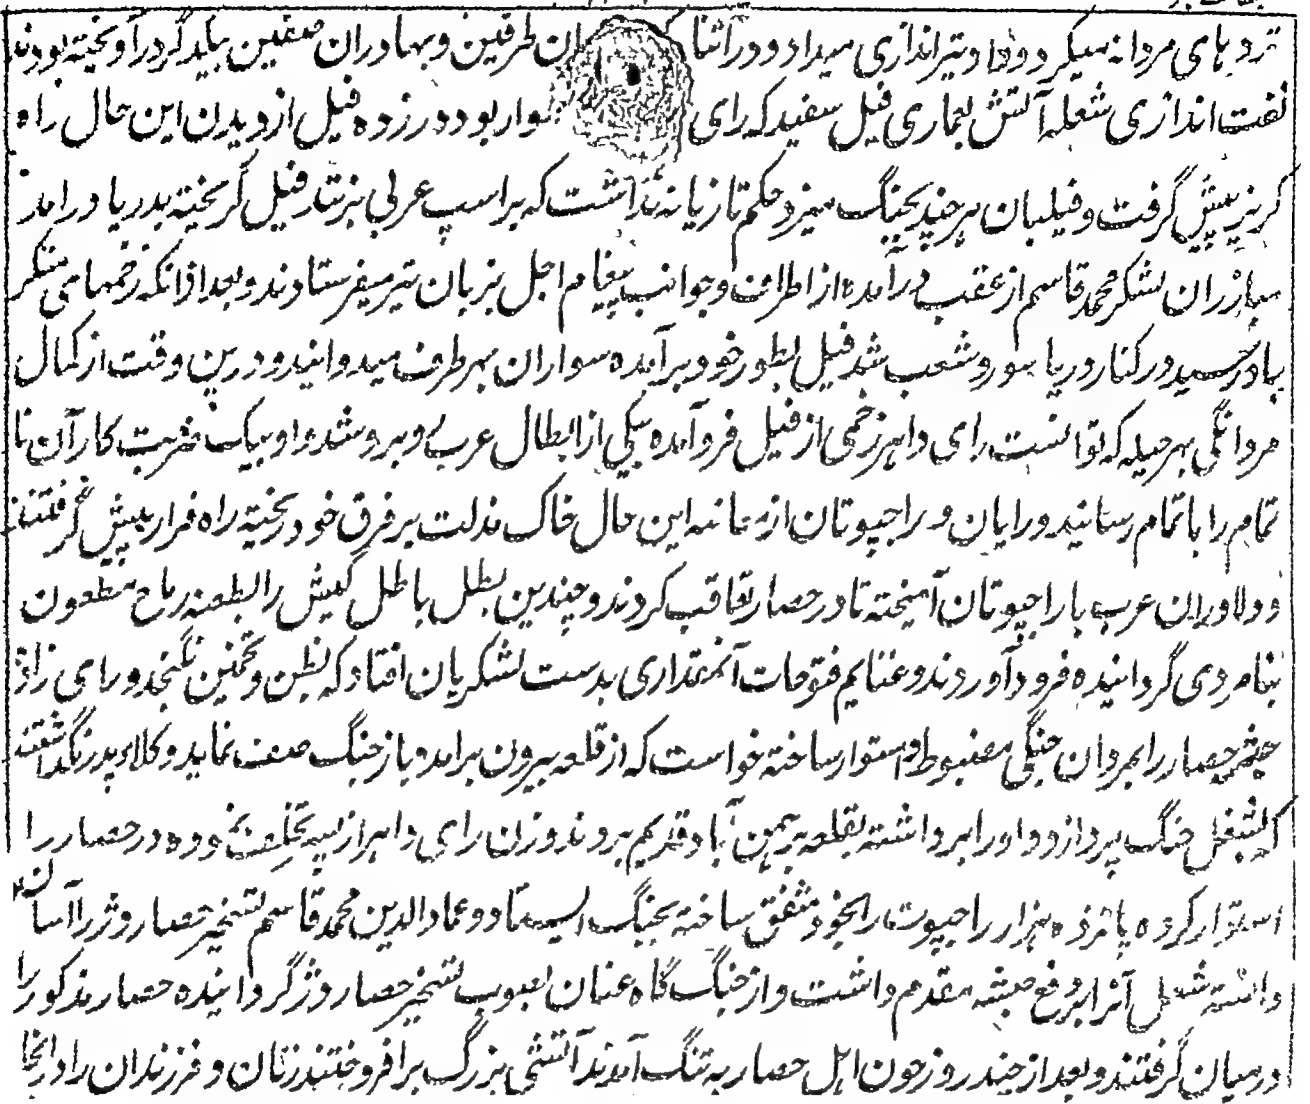 تردوهای مردانه میکرد و داد تیراندازی میداد و در اثنا ان طرفین و بهادران صفین بیکدگر درآویخته بودند
نفت اندازی شعله آتش بعماری فیل سفید که رای سوار بود در زده فیل از دیدن این حال راه
گریز پیش گرفت و فیلبان هرچند بچنگ میزد حکم تازیانه نداشت که بر اسپ عربی بزنند فیل گریخته بدریا در آمد
مبارزان لشکر محمد قاسم از عقب درآمده از اطراف و جوانب پیغام اجل بزبان تیر میفرستادند و بعد ازانکه زخمهای منکر
باو رسید در کنار دریا شور و شعب شد فیل بطور خود برآمده سواران بهر طرف میدوانید و درین وقت از کمال
مردانگی بهر حیله که توانست رای داهر زخمی از فیل فرو آمده بیکی از ابطال عرب روبرو شد و او بیک ضربت کار آن نا
تمام را باتمام رسانید و رایان و راجپوتان از معاینه این حال خاک مذلت بر فرق خود ریخته راه فرار پیش گرفتند
و دلاوران عرب با راجپوتان آمیخته تا در حصار تعاقب کردند و چندین بطل باطل کیش را بطعنه رماح مطعون
بنامردی گردانیده فرود آوردند و غنایم فتوحات آنمقداری بدست لشکریان افتاد که بظن و تخمین نگنجد و رای زاده
حصار را بمردان جنگی مضبوط و استوار ساخته خواست که از قلعه بیرون برآمده باز جنگ صف نماید وکلاء پدر نگذاشتند
که بشغل جنگ پردازد و او را برداشته بقلعه برهمن آباد قدیم بروند و زن رای داهر از پسر تخلف نموده در حصار را
استوار کرده پانزده هزار راجپوت را بخود متفق ساخته بجنگ ایستاد و عماد الدین محمد قاسم تسخیر حصار روز را آسان
دانسته شغل آنرا بر دفع مقدم داشت و از جنگ گاه عنان بصوب تسخیر حصار روژ گردانیده حصار مذکور را
در میان گرفتند و بعد از چند روز چون اهل حصار به تنگ آمدند آتشی بزرگ برافروختند زنان و فرزندان را در انجا